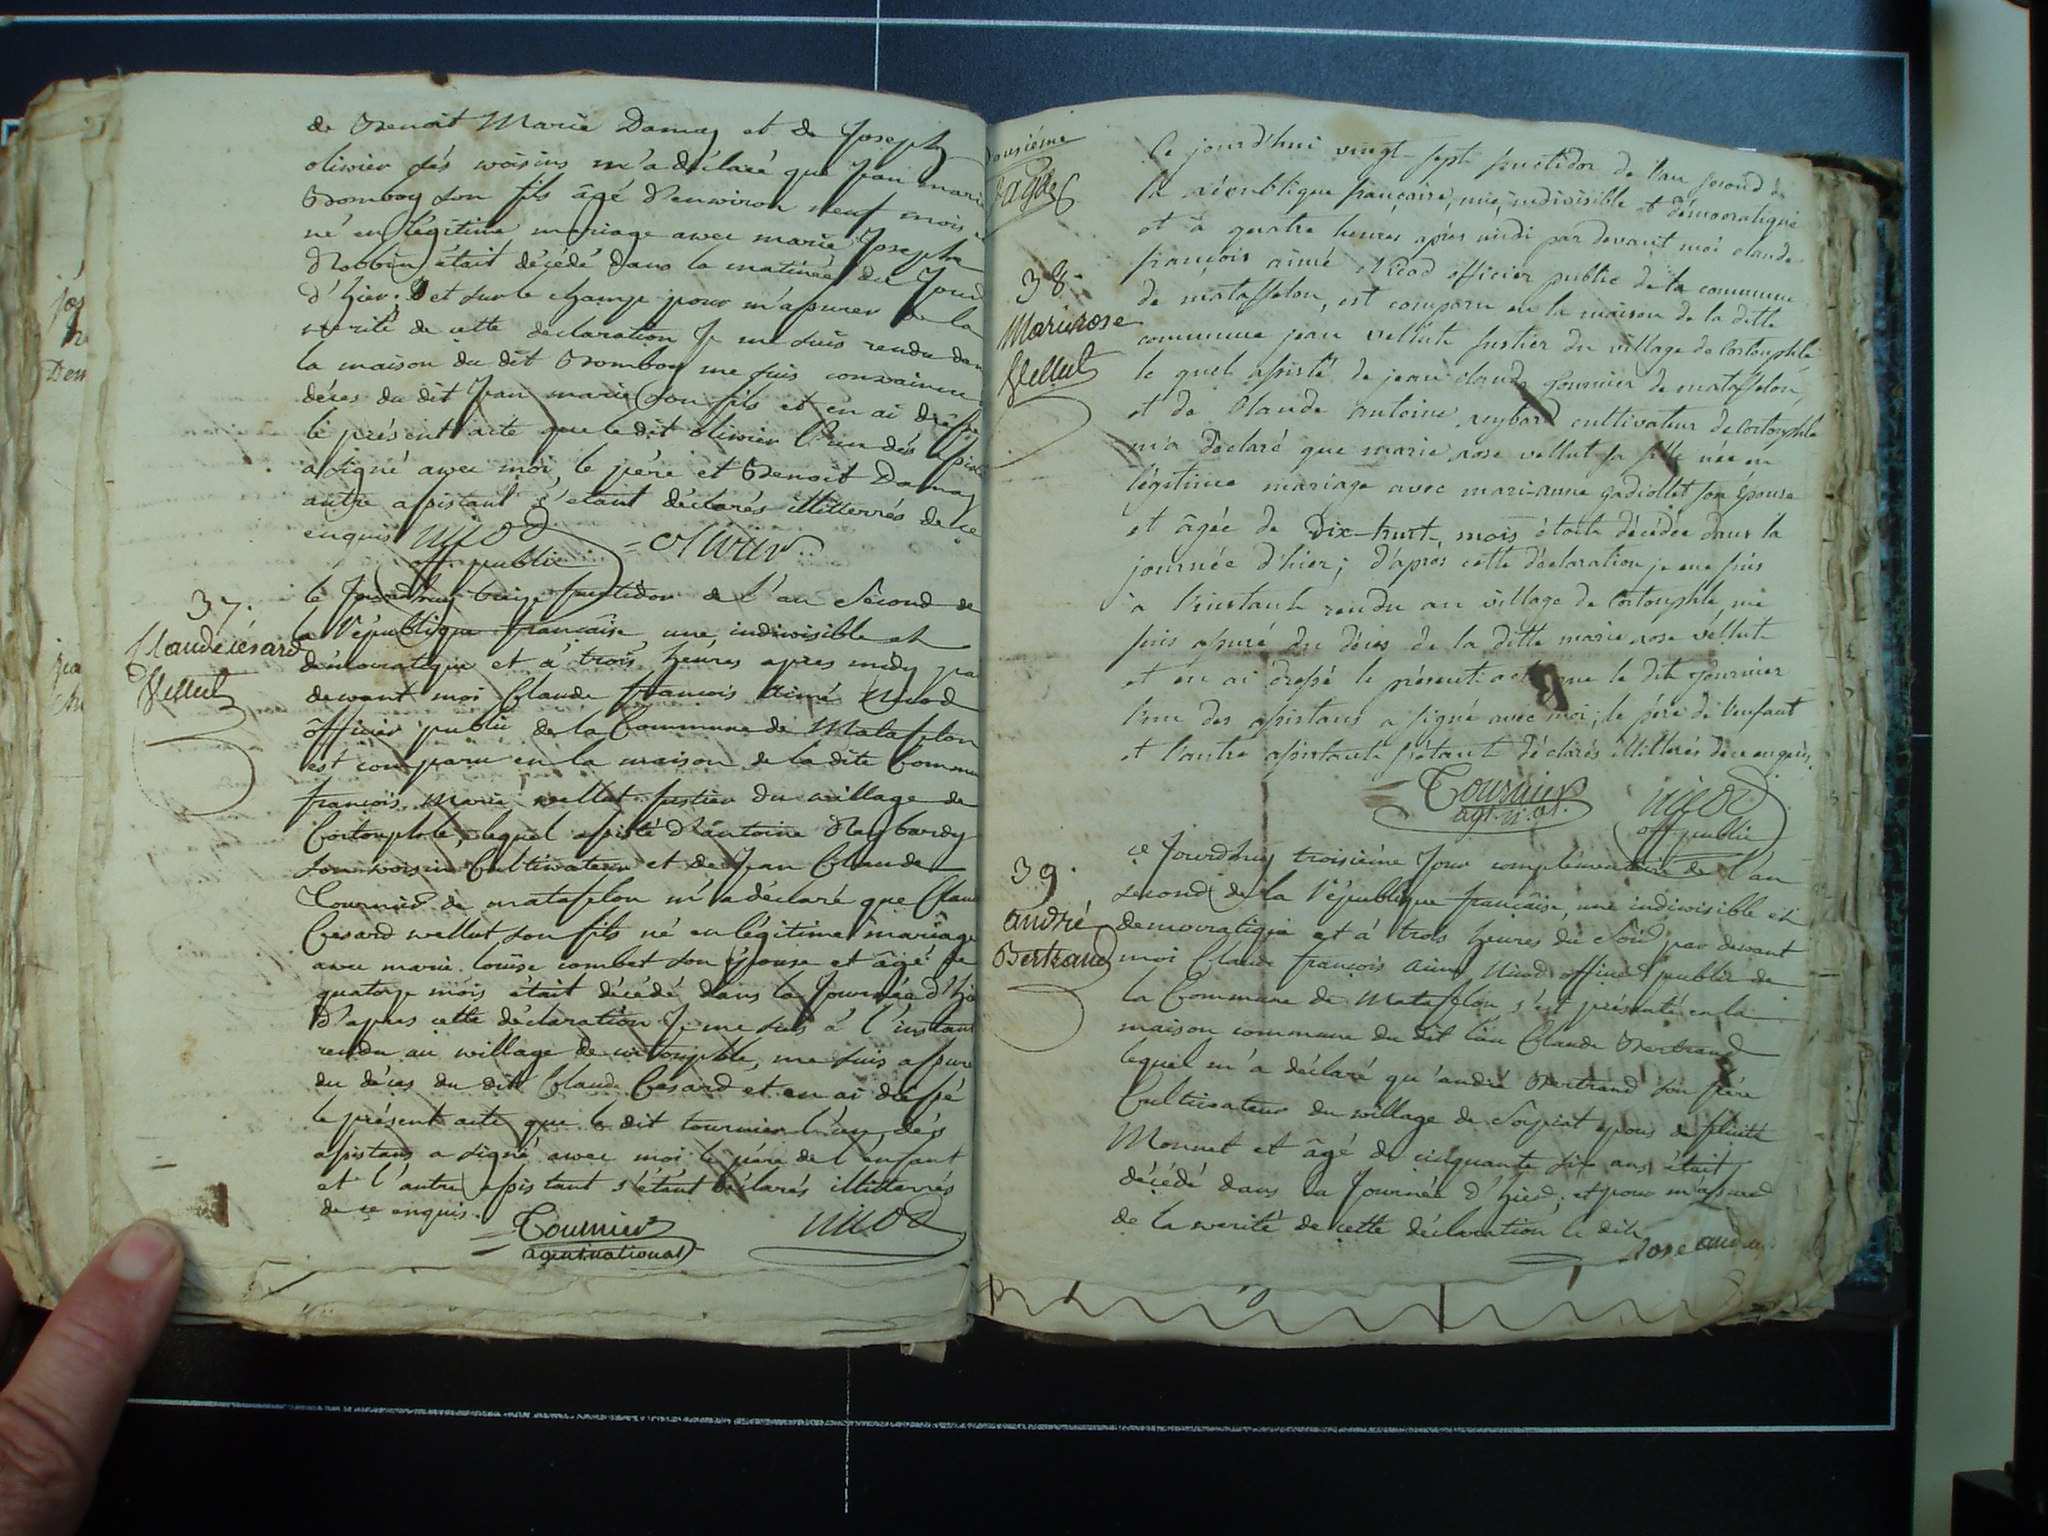 de Benoit Marie Damay et de Joseph
olivier sés voisins m'a déclaré que Jean marie
Bomboy son fils âgé d'environ neuf mois et
né en légitime mariage avec marie Josephe
Robbin était décédé dans la matinée du Jour
d'hier. Et sur le champ pour m'assurer de la
verité de cette déclaration Je me suis rendu dan
la maison du dit Bomboy me suis convaincu
déces du dit Jean marie son fils et en ai dressé
le présent acte que le dit olivier l'un dés assist
a signé avec moi le père et Benoit Damay
autre assistant s'etant déclarés illitterrés de ce
enquis nicod = olivier
off. public
37.
Claude césard
Vellut
le Jourdhuy treize fructidor de l'an Second de
la République française une, indivisible et
démocratique et à trois heures apres midy pa
devant moi Claude francois Aimé Nicod
officier public de la Commune de Mataflon
est comparu en la maison de la dite Commu
françois Marie vellut fustier du village de
Cortouphle, lequel assisté d'antoine Raybardy
son voisin Cultivateur et de Jean Claude
Tournier de mataflon m'a déclaré que Clau
Cesard vellut son fils né en légitime mariage
avec marie louise combet son épouse et âgé de
quatorze mois était décédé dans la Journée d'hie
D'apres cette déclaration Je me suis à l'instant
rendu au village de cortouphle, me suis assuré
du déces du dit Claude Cesard et en ai dressé
le présent acte que le dit tournier l'un dés
assistans a signé avec moi le père de l'enfant
et l'autre assistant s'étant déclarés illitterrés
de ce enquis.
= Tournier nicod
agent national
Dousiéme
pagde
38.
Marie rose
Vellut
Ce jourd'hui vingt-sept fructidor de l'an second de
la république française, une, indivisible et démocratique
et à quatre heures après midi par devant moi claude
françois aimé Nicod officier public de la commune
de mataffelon, est comparu en la maison de la ditte
commune jean vellut fustier du village de Cortouphle,
le quel assisté de jean claude Tournier de mataffelon,
et de Claude antoine reybard cultivateur de Cortouphle
m'a déclaré que marie rose vellut sa fille née en
légitime mariage avec mari-anne gadiollet son épouse
et âgée de Dix-huit mois étoit décédée dans la
journée d'hier; d'après cette déclaration je me suis
à l'instant rendu au village de Cortouphle, me
suis assuré du décès de la ditte marie rose vellut
et en ai dressé le présent acte que le dit Tournier
l'un des assistans a signé avec moi; le père de l'enfant
et l'autre assistant s'étant déclarés illitterés de ce enquis.
= Tournier nicod
agt. nat. off public
39.
andré
Bertrand
ce Jourdhuy troisiéme Jour complémentaire de l'an
second de la République française, une indivisible et
démocratique et à trois heures du Soir par devant
moi Claude françois Aimé Nicod officier public de
la Commune de Mataflon s'est présenté en la
maison commune du dit lieu Claude Bertrand
lequel m'a déclaré qu'andré Bertrand son frère
Cultivateur du village de Corpiat epous de felicité
Monnet et âgé de cinquante six ans était
décédé dans la Journée d'hier, et pour m'assurer
de la verité de cette déclaration le dit